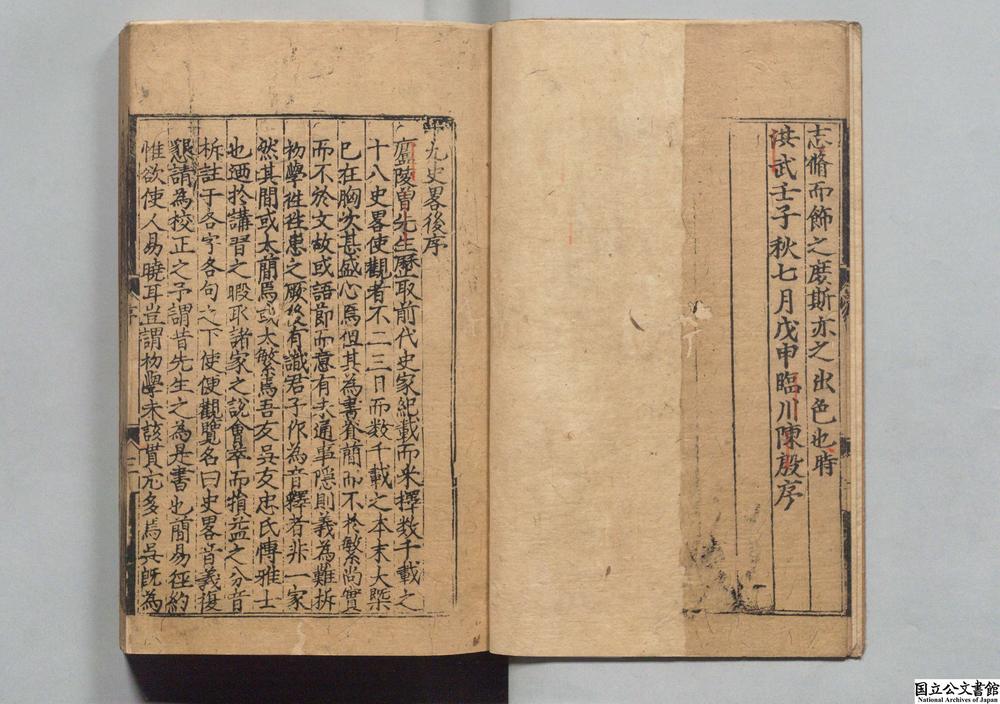 志脩而飾之庶斯亦之出色也時
洪武壬子秋七月戊申臨川陳殷序
十九史畧後序
廬陵曾先生歷取前代史家紀載而采擇数千載之
十八史畧使觀者不二三日而数千載之本末大槩
已在胸次甚盛心焉但其為書脊簡而不於繁尚實
而不於文故或語節而意有未通事隱則義為難拆
初學徃徃患之厥後有識君子作為音釋者非一家
然其間或太簡焉或太繁焉吾友吳友忠氏博雅士
也廼於講習之暇取諸家之說會萃而損益之分音
析註于各字各句之下使便觀覽名曰史畧音義復
懇請為校正之予謂昔先生之為是書也簡易徑約
惟欲使人易曉耳豈謂初學未該貫尤多焉吳既為
序
国立公文書館
National Archives of Japan